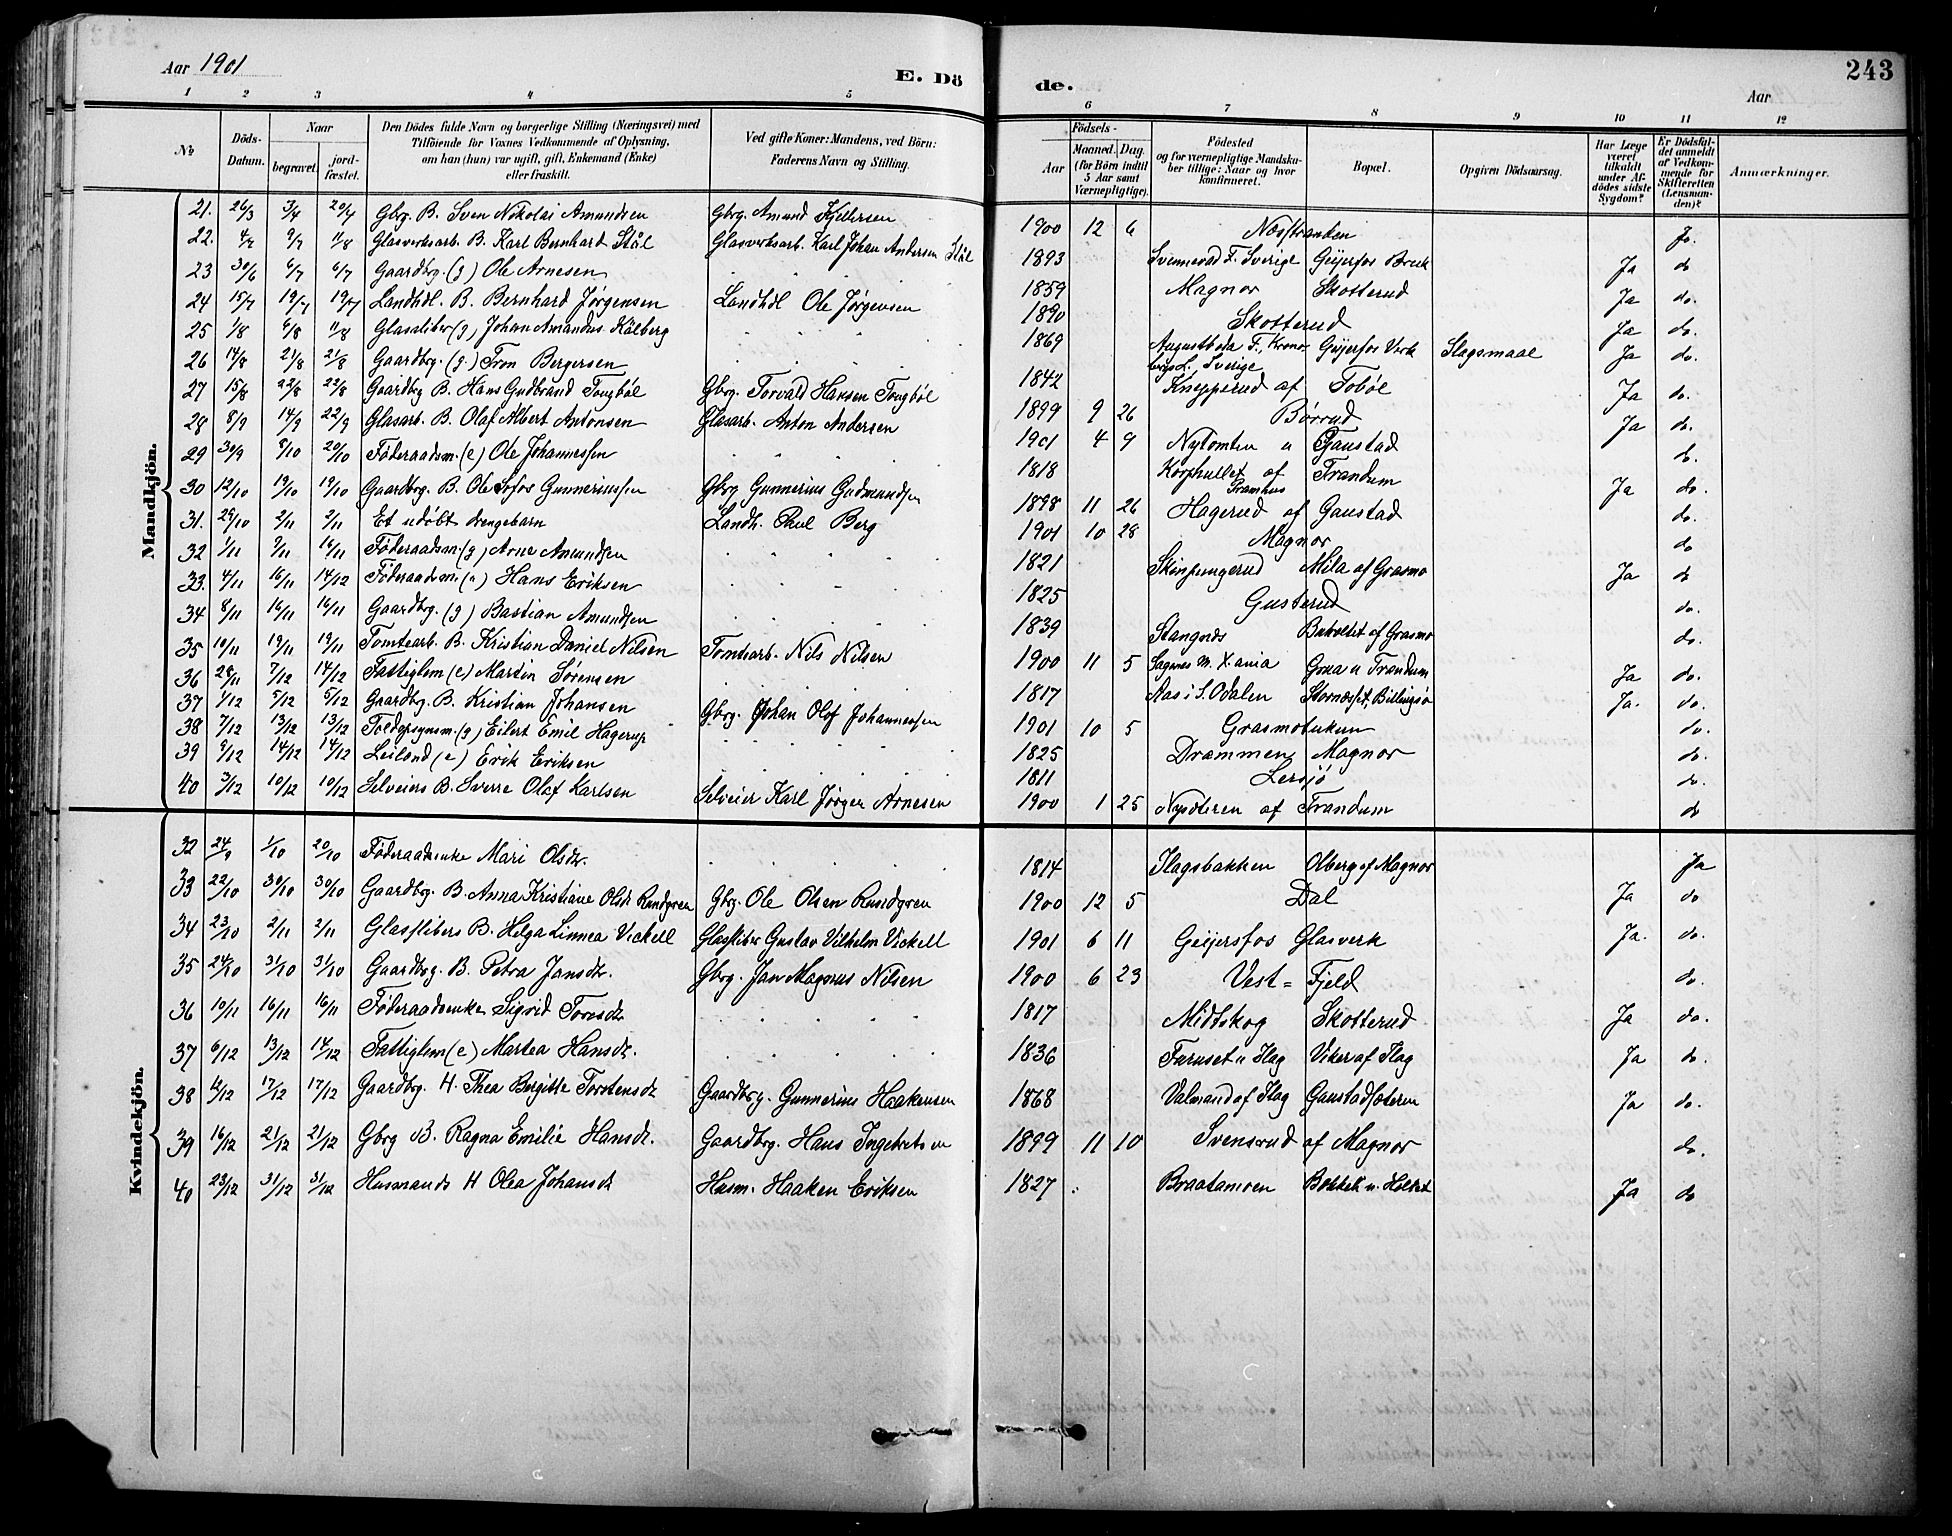 Aar 1901 E. Dö de. Aar 243
1 2 3 4 5 6 7 8 9 10 11 12
No Döds-Datum. Naar begravet. jord-fæstet. Den Dödes fulde Navn og borgerlige Stilling (Næringsvei) med Tilföiende for Voxnes Vedkommende af Oplysning, om han (hun) var ugift, gift, Enkemand (Enke) eller fraskilt. Ved gifte Koner: Mandens, ved Börn: Faderens Navn og Stilling. Födsels- Aar Maaned. Dag. (for Börn indtil 5 Aar samt Værnepligtige). Födested og for værnepligtige Mandska-ber tillige: Naar og hvor konfirmeret. Bopæl. Opgiven Dödsaarsag. Har Læge været tilkaldt under Af-dödes sidste Sygdom? Er Dödsfal-det anmeldt af Vedkom-mende for Skifteretten (Lensman-den)? Anmærkninger.
Mandkjön.
21. 26/3 3/4 20/4 Gbrg. B. Sven Nikolai Amundsen Gbrg. Amund Kjellersen 1900 12 6 Næsstranden Jo.
22. 4/7 9/7 11/8 Glasverksarb. B. Karl Bernhard Stål Glasverksarb. Karl Johan Andersen Stål 1893 Svennevad F. Sverige Geijerfos Bruk Ja do
23 30/6 6/7 6/7 Gaardbg. (g) Ole Arnesen 1859 Magnor Skotterud Ja do.
24 15/7 19/7 19/7 Landhdl. B. Bernhard Jørgensen Landhdl Ole Jørgensen 1890 Skotterud Ja do.
25 1/8 6/8 11/8 Glassliber (g) Johan Amandus Kålberg 1869 Augustboda F., Krono-bergs L. Sverige Geijerfos Verk Slagsmaal Ja do.
26 14/8 21/8 21/8 Gaardbg. (g.) Tron Bergersen 1842 Knepperud af Tobøl Ja do.
27 15/8 22/8 22/8 Gaardbg B. Hans Gudbrand Tougbøl Gbrg. Torvald Hansen Tougbøl 1899 9 26 Børrud Ja do.
28 8/9 14/9 22/9 Glasarb. B. Olaf Albert Antonsen Glasarb. Anton Andersen 1901 4 9 Nytomten u Gaustad do.
29 30/9 8/10 20/10 Föderaadsm. (e) Ole Johannessen 1818 Korphullet af Trandum Ja do.
30 12/10 19/10 19/10 Gaardbrg. B. Ole Sofus Gunneriussen Gbrg Gunnerius Gudmundsen 1898 11 26 Hagerud af Gaustad do.
31. 29/10 2/11 2/11 Et udöbt drengebarn Landh. Paul Berg 1901 10 28 Magnor do
32 1/11 9/11 16/11 Föderaadsm. (g) Arne Amundsen 1821 Skinpungerud Mila af Grasmo Ja do
33. 4/11 16/11 14/12 Föderaadsm (e) Hans Eriksen 1825 Gusterud do.
34 8/11 16/11 16/11 Gaardbrg. (g) Bastian Amundsen 1839 Stangnes Bakvellet af Grasmo do.
35 10/11 19/11 19/11 Tomtearb. B. Kristian Daniel Nilsen Tomtearb. Nils Nilsen 1900 11 5 Sagenes M. X.ania Graa u Trandum Ja do.
36 28/11 7/12 14/12 Fattiglem (e) Martin Sørensen 1817 Aas i S. Odalen Stornæset, Billingsø Ja. do.
37 1/12 5/12 5/12 Gaardbg. B. Kristian Johansen Gbrg. Johan Olof Johannessen 1901 10 5 Grasmotukun do.
38 7/12 13/12 13/12 Toldopsynsm. (g) Eilert Emil Hagerup 1825 Drammen Magnor do.
39 9/12 14/12 14/12 Leilend (e) Erik Eriksen 1811 Lersjö do.
40 3/12 10/12 10/12 Selveiers B. Sverre Olaf Karlsen Selveier Karl Jørgen Arnesen 1900 1 25 Nysæteren af Trandum do
Kvindekjön.
32 24/9 1/10 20/10 Föderaadsenke Mari Olsdr. 1814 Slagsbakken Olberg af Magnor Ja
33 22/10 30/10 30/10 Gaardbrg. B. Anna Kristiane Olsdr Rundgren Gbrg. Ole Olsen Rundgren 1900 12 5 Dal Ja do
34 23/10 2/11 2/11 Glasslibers B. Helga Linnea Vickell Glassliber Gustav Vilhelm Vickell 1901 6 11 Geijersfos Glasverk Ja. do.
35 24/10 31/10 31/10 Gaardbrg. B. Petra Jansdr. Gbrg. Jan Magnus Nilsen 1900 6 23 Vest= Fjeld do.
36 10/11 16/11 16/11 Föderaadsenke Sigrid Toresdr 1817 Midtskog Skotterud Ja do.
37 6/12 13/12 14/12 Fattiglem (e) Martea Hansdr. 1836 Furuset u Slag Viker af Slag Ja do.
38 12/12 17/12 17/12 Gaardbrg. H. Thea Bergitte Torstensdr Gaardbrg. Gunnerius Haakensen 1868 Valmand af Slag Gaustadsæteren Ja do.
39 16/12 21/12 21/12 Gbrg B. Ragna Emilie Hansdr. Gaardbrg. Hans Ingebretsen 1899 11 10 Svensrud af Magnor do.
40 23/12 31/12 31/12 Husmands H Olea Johansdr Husm. Haaken Eriksen 1827 Braatamoen Ja do